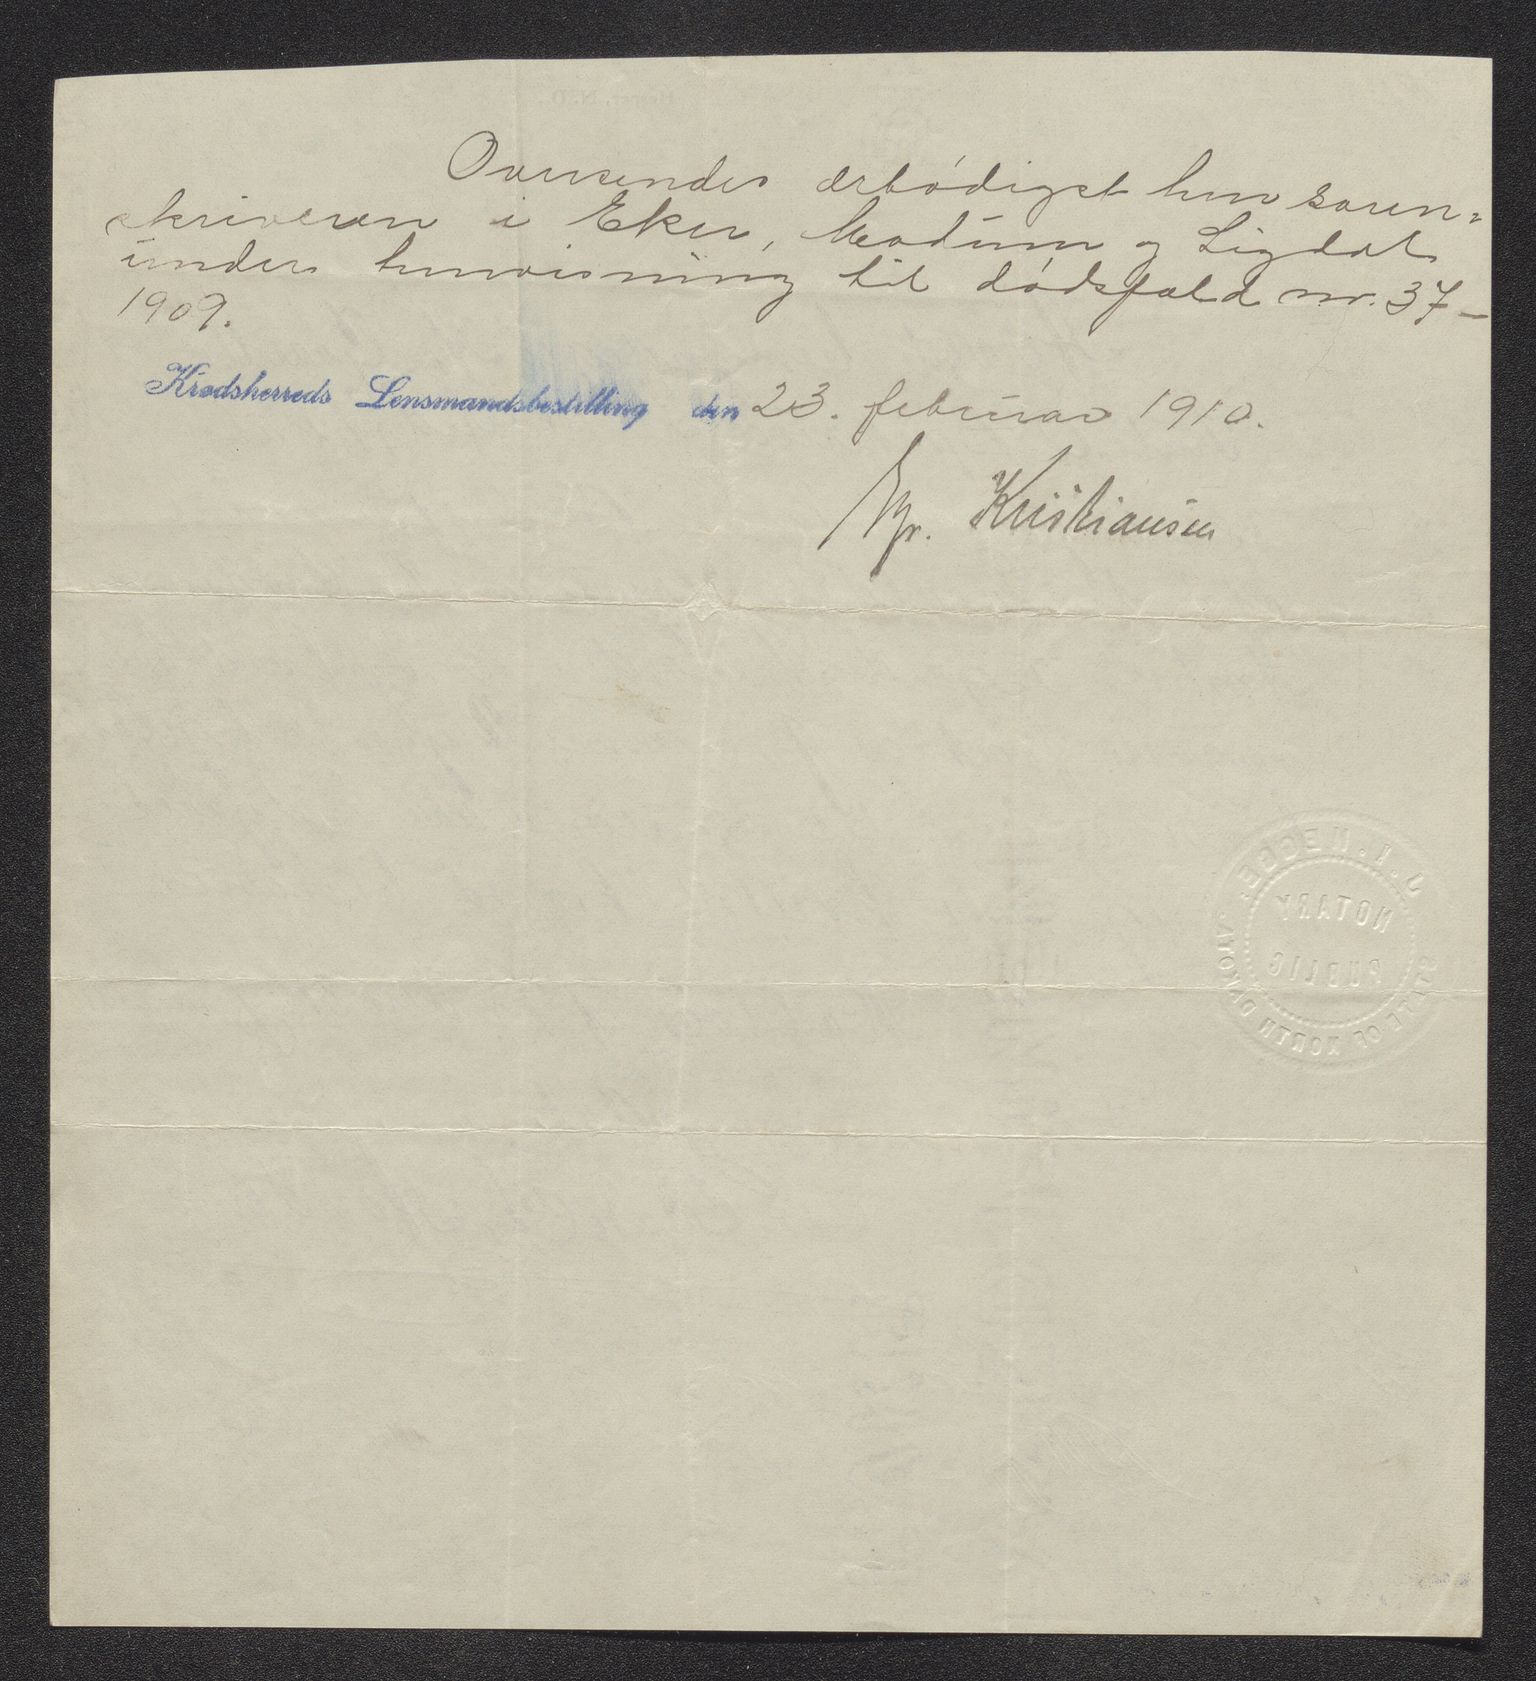 Oversendes ærbødigst herr soren=
skriveren i Eker, Modum og Sigdal
under henvisning til dødsfald nr. 37-
1909.
Krødsherreds Lensmandsbestilling den 23. februar 1910.
Kristiansen
J. I. HEGGE.
NOTARY
PUBLIC
STATE OF NORTH DAKOTA.